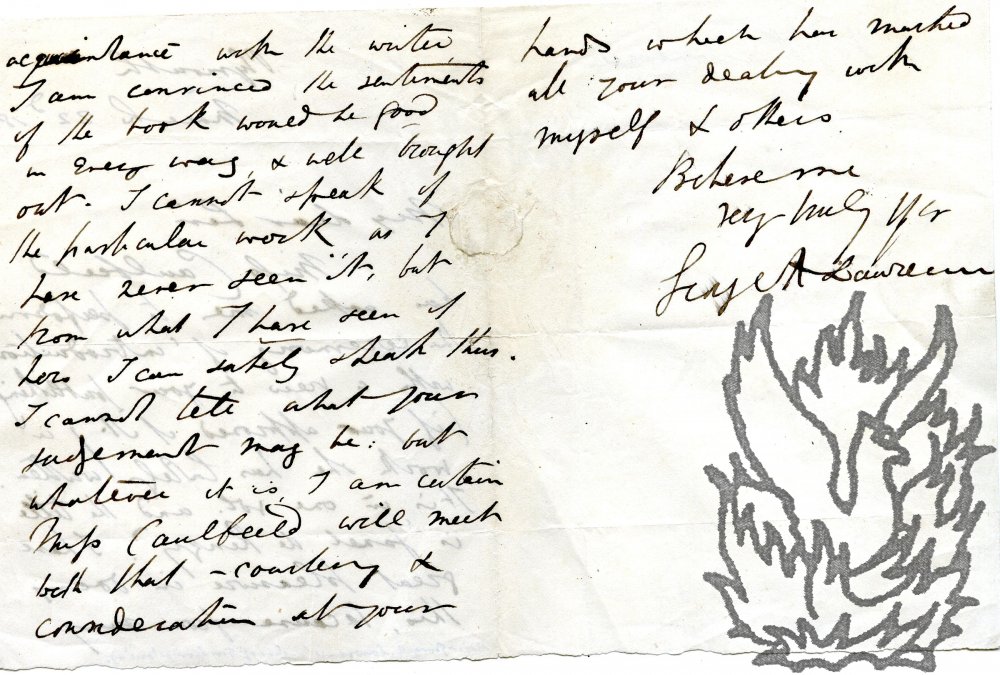 acquaintance with the writer,
I am convinced the sentiments
of the book would be good
in every way, & well brought
out. I cannot speak of
the particular work as I
have never seen it, but
from what I have seen of
hers I can safely speak thus.
I cannot tell what your
judgement may be: but
whatever it is, I am certain
Miss Caulfeild will meet
with that courtesy &
consideration at your
hands which has marked
all your dealing with
myself & others.
Believe me
very truly yrs
George A Lawrence